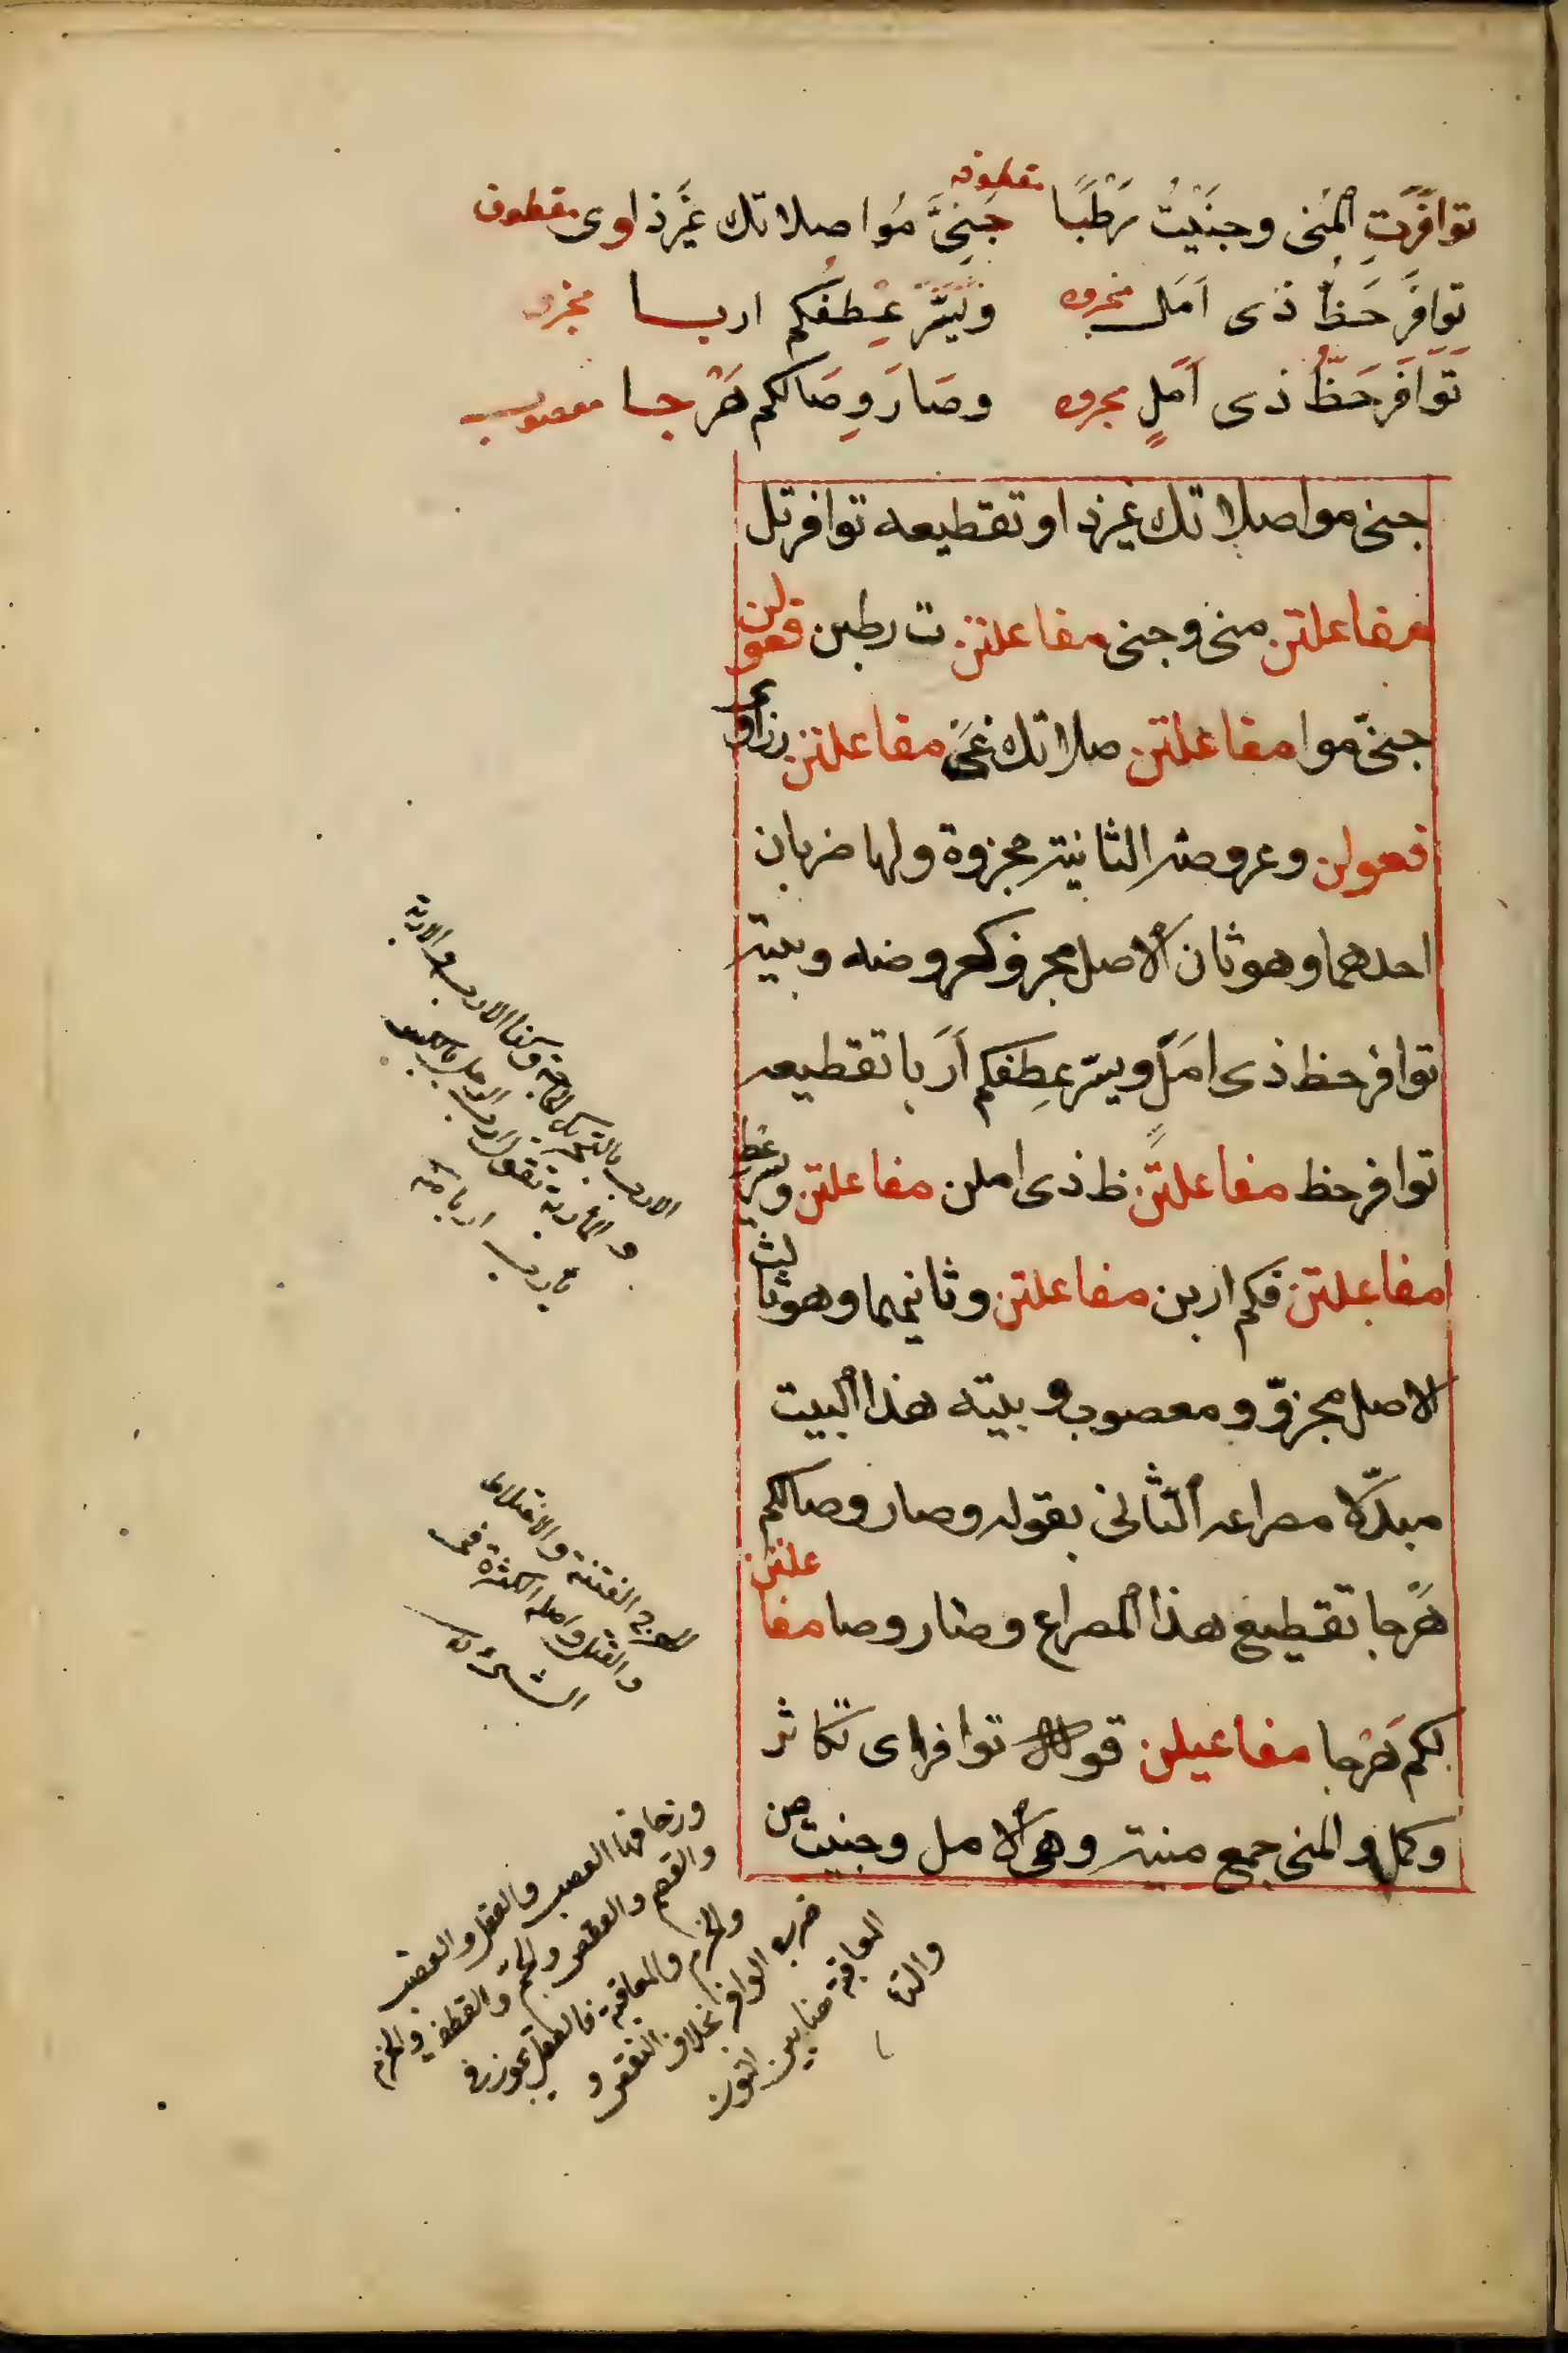 توافَرَتِ المُنى وجنَيْتُ رَطْبًا مقطوفه جَنِىَّ مُواصلاتك غَيَرذاوى مقطوف
توافَر حَظُّ ذى اَمَل مجزوه ويَسَّرَ عِطفُكم اربا مجزو
تَوَافَر حَظُّ ذى اَمَلٍ مجزوه وصَارَ وِصَالكم هَرْجا معصوب
جنى مواصلاتك غيرذاو تقطيعه توافرتل
مفاعلتن منى وجنى مفاعلتن ت رطبن فعولن
جنىّ موا مفاعلتن صلاتك غى مفاعلتن رذاوى
فعولن وعروضه الثانية مجزوة ولها ضربان
احدهما وهو ثان الاصل مجزو كعروضه وبيته
توافر حظ ذى امَلٍ ويسّر عِطفكم اَرَبا تقطيعه
توافر حظ مفاعلتن ظ ذى املن مفاعلتن ويسرعط
مفاعلتن فكم اربن مفاعلتن وثانيهما وهو ثالث
الاصل مجزوّ ومعصوب وبيته هذا البيت
مبدّلا مصراعه الثانى بقوله وصار وصالكم
هَرْجا تقطيع هذا المصراع وصار وصا مفاعلتن
لكم هَرْجا مفاعيلن قوله توافر اى تكاثر
وكمل والمنى جمع منية وهى الامل وجنيت من
الارب بالتحريك الحاجة وكذا الارب والاربة
والمأربة تقول ارب الرجل بالكسر
يأرب اربا منه
الهرج الفتنة والاختلاط
والقتل واصله الكثرة فى
الشئ
وزحافها العصب والعقل والعضب
والقصم والعقص والجمّ والقطف والخرم
والخزم والمعاقبة فالعقل يجوز فى
ضرب الوافر بخلاف النقص و
المعاقبة هنا بين النون
والتاء